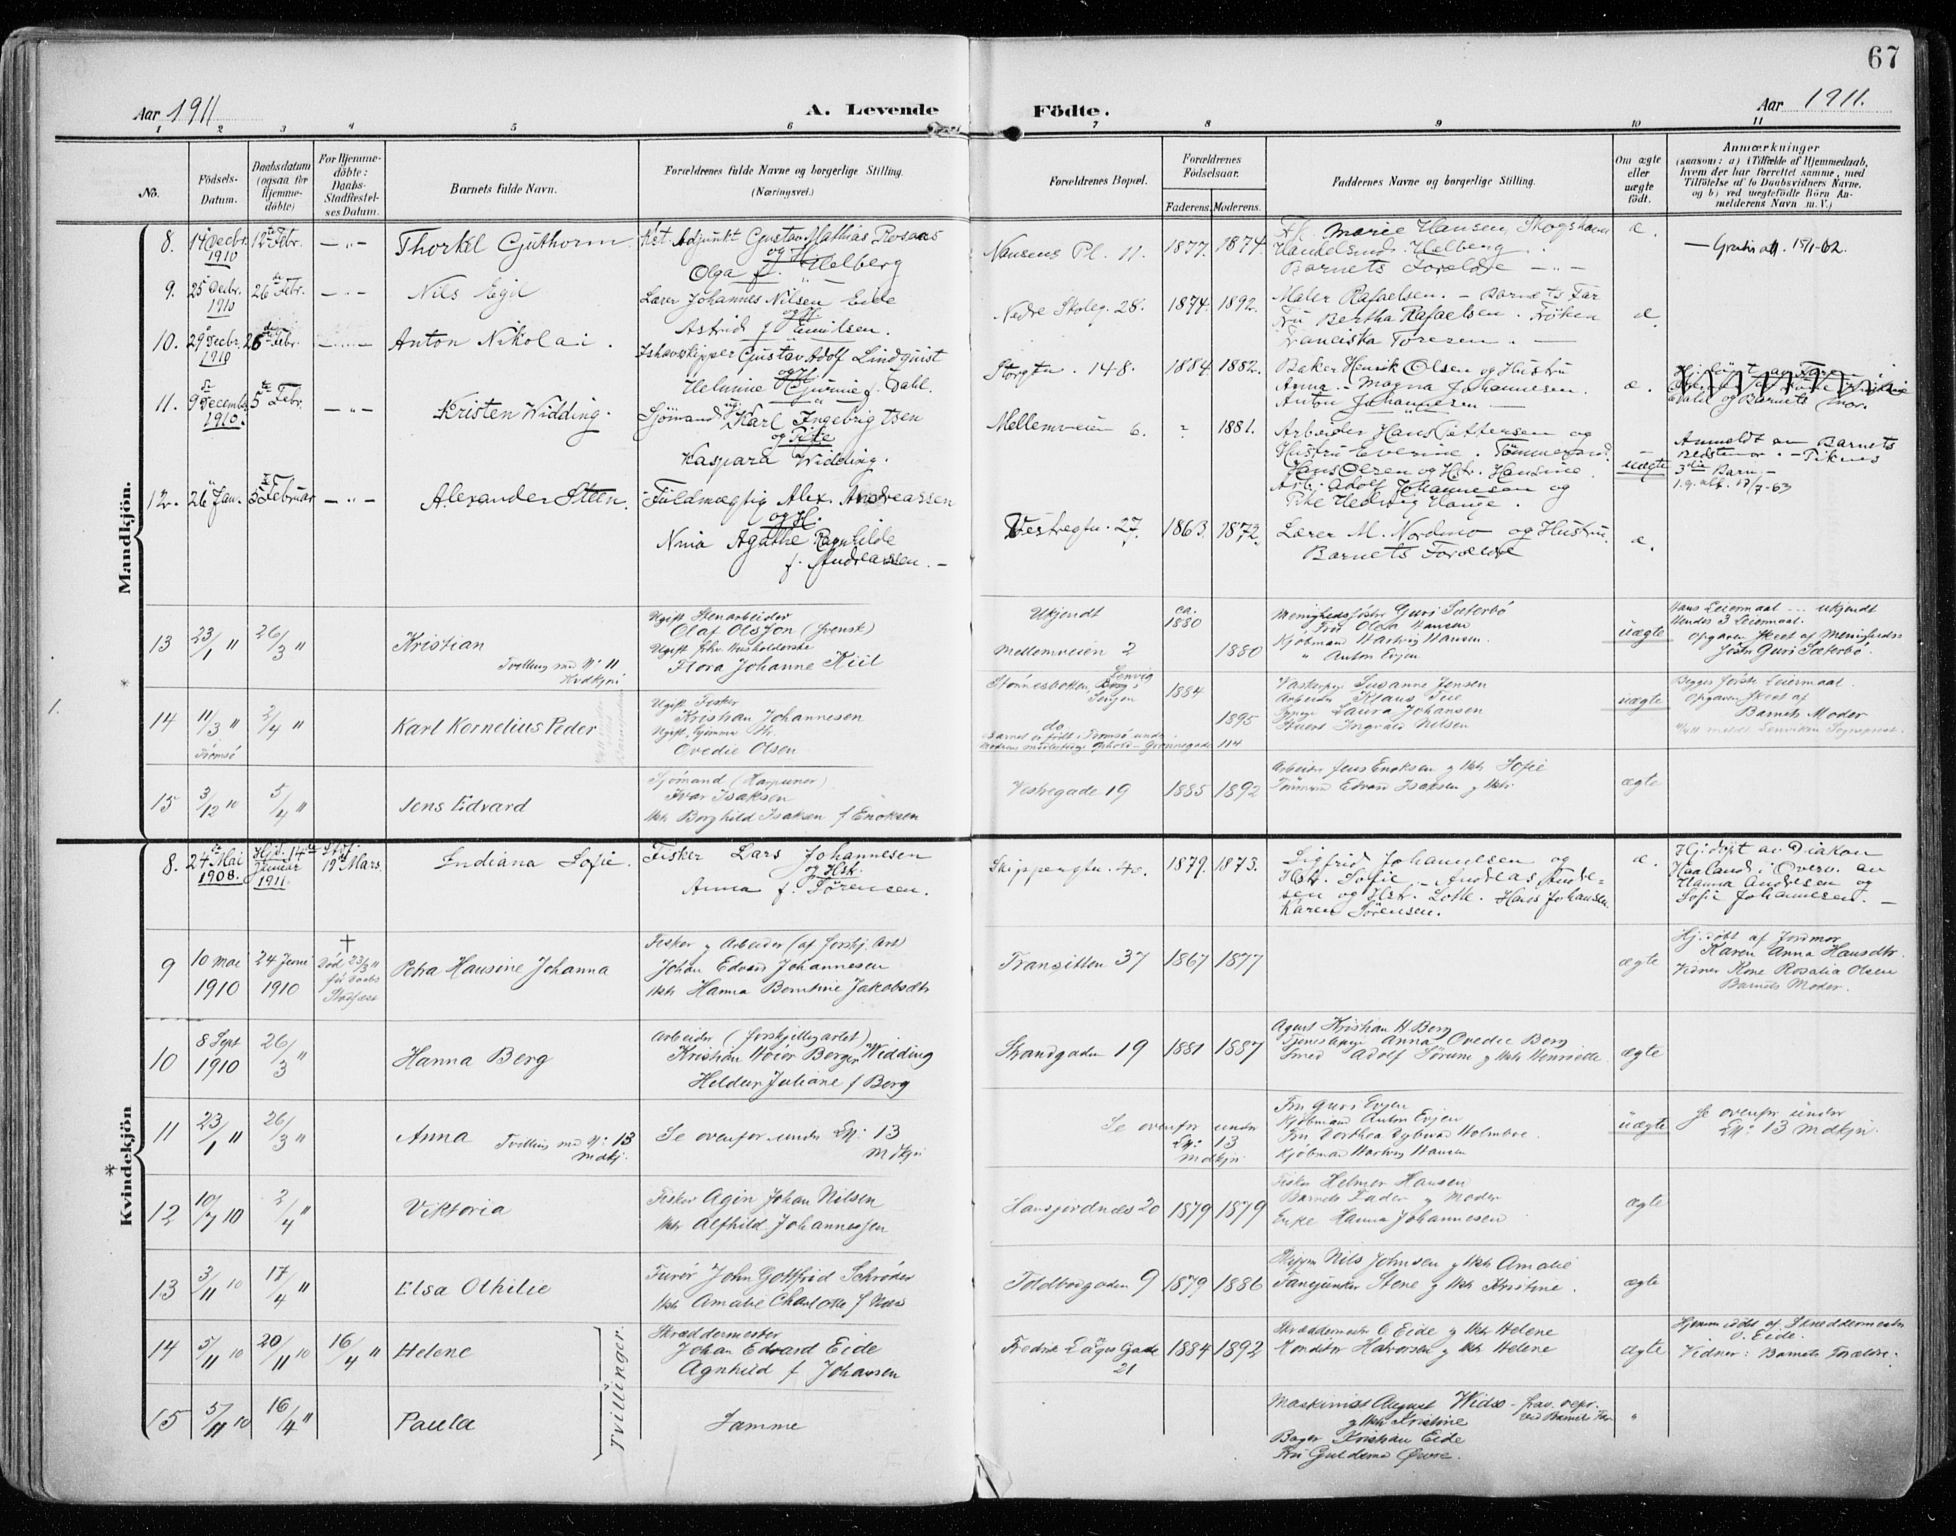 67
Aar 1911
A. Levende
Födte.
Aar 1911.
1 2 3 4 5 6 7 8 9 10 11
No.
Födsels-
Datum.
Daabsdatum
(ogsaa for
Hjemme-
döbte)
For Hjemme-
döbte:
Daabs-
Stadfæstel-
ses Datum.
Barnets fulde Navn.
Forældrenes fulde Navne og borgerlige Stilling.
(Næringsvei.)
Forældrenes Bopæl.
Forældrenes
Födselsaar.
Faderens. Moderens.
Faddernes Navne og borgerlige Stilling.
Om ægte
eller
uægte
födt.
Anmærkninger
(saasom: a) i Tilfælde af Hjemmedaab,
hvem der har forrettet samme, med
Tilföielse af to Daabsvidners Navne,
og b) ved uegtefödte Börn An-
melderens Navn m. V.)
Mandkjön.
8. 14 Decbr. 1910
12 Febr.
Thorkel Guthorm
Kst. Adjunkt Gustav Mathias
og H.
Olga f. Helberg
Nansens Pl. 11. 1877. 1874.
Marie Hansen
Helberg
Barnets Forældre
æ.
9. 25 Decbr. 1910
26 Febr.
Nils Egil
Lærer Johannes Nilsen Eide
og H.
Astrid f. Emilsen.
Nedre Skoleg. 28. 1874. 1892.
Maler Rafaelsen. - Barnets Far
Fru Bertha Rafaelsen. Fröken
Franciska Toresen. -
æ.
10. 29 Decbr. 1910
26 Febr.
Anton Nikolai.
Ishavsskipper Gustav Adolf Lindquist
og H.
Helmine Gjurine f. Dahl.
Storgtn. 148. 1884 1882.
Baker Henrik Olsen og Hustru
Anna. - Magna Johannesen.
Anton Johannesen -
æ.
11. 9 Decembr 1910.
5 Febr.
Kristen Widding.
Sjömand Karl Ingebrigtsen
og Pike
Kaspara Widding.
Mellemveien 6. ? 1881.
Arbeider Hans Pettersen og
Hustru Everine. Tömmermd.
Hans Olsen og Hst. Hansine.
Arb. Adolf Johannesen og
Pike Hedvig Hauge.
uægte
Anmeldt av Barnets
Bedstemor. - Pikens
3die Barn. -
12. 26 Jan.
5 Februar
Alexander Steen.
Fuldmægtig Alex. Andreassen
og H.
Nina Agathe Ragnhilde
f. Andreassen. -
Vestregtn. 27. 1863. 1872.
Lærer M. Nordmo og Hustru.
Barnets Forældre
æ.
13 23/1 " 26/3 "
Kristian
Tvilling med N: 11
Kvdkjøn
Ugift Stenarbeider
Olaf Olsson (svensk)
Ugift fhv. Husholderske
Flora Johanne Kiil
Ukjendt ca. 1880
Mellemveien 2 1880
Menighedssøster Guri Sæterbö
Fru Olda Hansen
Kjöbmand Hartvig Hansen.
" Anton Evjen
uægte
Hans Leiermaal ... ukjendt
Hendes 3 Leiermaal.
Opgaven skeet af Menigheds-
söster Guri Sæterbö
14 11/3 " 2/4 "
Tromsø
Karl Kornelius Peder
Ugift Fisker
Kristian Johannesen
Ugift
Ovedie Olsen
Lenvig
1884
do. 1895
Barnet er født i Tromsø under
Moderens midlertidige Ophold - Grønnegade 114
Susanne Jensen
Arbeider Klaus
Laura Johansen
Ingvald Nilsen
uægte
Begges første Leiermaal.
Opgaven skeet af
Barnets Moder
15 3/12 10 5/4 "
Jens Edvard
Sjømand (Harpuner)
Ivar Isaksen
Hstr Borghild Isaksen f Enoksen
Vestregade 19 1885 1892
Arbeider Jens Enoksen og Hstr Sofie
Edvard Isaksen og Hstr
ægte
Kvindekjön
8. 24 Mai 1908.
Hjd. 14de Januar 1911.
Stdf. 19 Mars.
Indiana Sofie.
Fisker Lars Johannesen
og Hst.
Anna f. Sørensen.
Skippergtn. 4c. 1879. 1873.
Sigfrid Johannesen og
Hst. Sofie - Andreas Andre-
sen og Hst. Lotte. Hans Johansen
Karen Sørensen.
æ.
Hj. döpt av Diakon
Haaland i Overv. av
Hanna Andresen og
Sofie Johannesen. -
9 10 Mai 1910
24 Juni 1910
† Død 23/3 "
før Daabs
Stadfæst
Petra Hansine Johanna
Fisker og Arbeider (af forskj. Art)
Johan Edvard Johannesen
Hstr Hanna Berntine Jakobsdtr
Transitten 37 1867 1877
ægte
Hj. døbt af Jordmor
Karen Anna Hansdtr.
Vidner Kone Rosalia Olsen
Barnets Moder.
10 8 Sept 1910 26/3 "
Hanna Berg
Arbeider (forskjellig artet)
Kristian Høier Berger Widding
Heldur Juliane f Berg
Strandgaden 19 1881 1887
Agent Kristian H. Berg
Tjenestepige Anna Ovedie Berg
Smed Adolf Sørum og Hstr Henriette
ægte
11 23/1 " 26/3 "
Anna
Tvilling med N: 13
Mdkj.
Se ovenfor under N: 13
Mdkjn
Se ovenfor under
N: 13
Mdkjn
Fru Guri Evjen
Kjöbmand Anton Evjen
Fru Dorthea Holmboe
Kjöbmand Hartvig Hansen
uægte
Se ovenfor under
N: 13 Mdkjn.
12 10/7 10 2/4 "
Viktoria
Fisker Agin Johan Nilsen
Hstr Alfhild Johannessen
Hansjordnæs 20 1879 1879
Fisker Helmer Hansen
Barnets Fader og Moder
Enke Hanna Johannesen
ægte
13 3/11 10 17/4 "
Elsa Othilie
Furér John Gottfrid Schrøder
Hstr Amalie Charlotte f
Toldbodgaden 9 1879 1886
Skipper Nils Johnsen og Hstr Amalie
Fanejunker Stene og Hstr Kristine.
ægte
14 5/11 10 20/11 10 16/4 "
Helene
Tvillinger.
Skræddermester
Johan Edvard Eide
Agnhild f Johansen
Fredrik Langes Gade 21 1884 1892
Skræddermester O Eide og Hstr Helene
Konditor Halvorsen og Hstr Helene
ægte
Hjemmedøbt af Skræddermester
O. Eide.
Vidner: Barnets Forældre.
15 5/11 10 16/4 "
Paula
Samme
Maskinist August Widsø - frav. repr.
og Hstr Kristine ved Barnets Far
Bager Kristian Eide
"